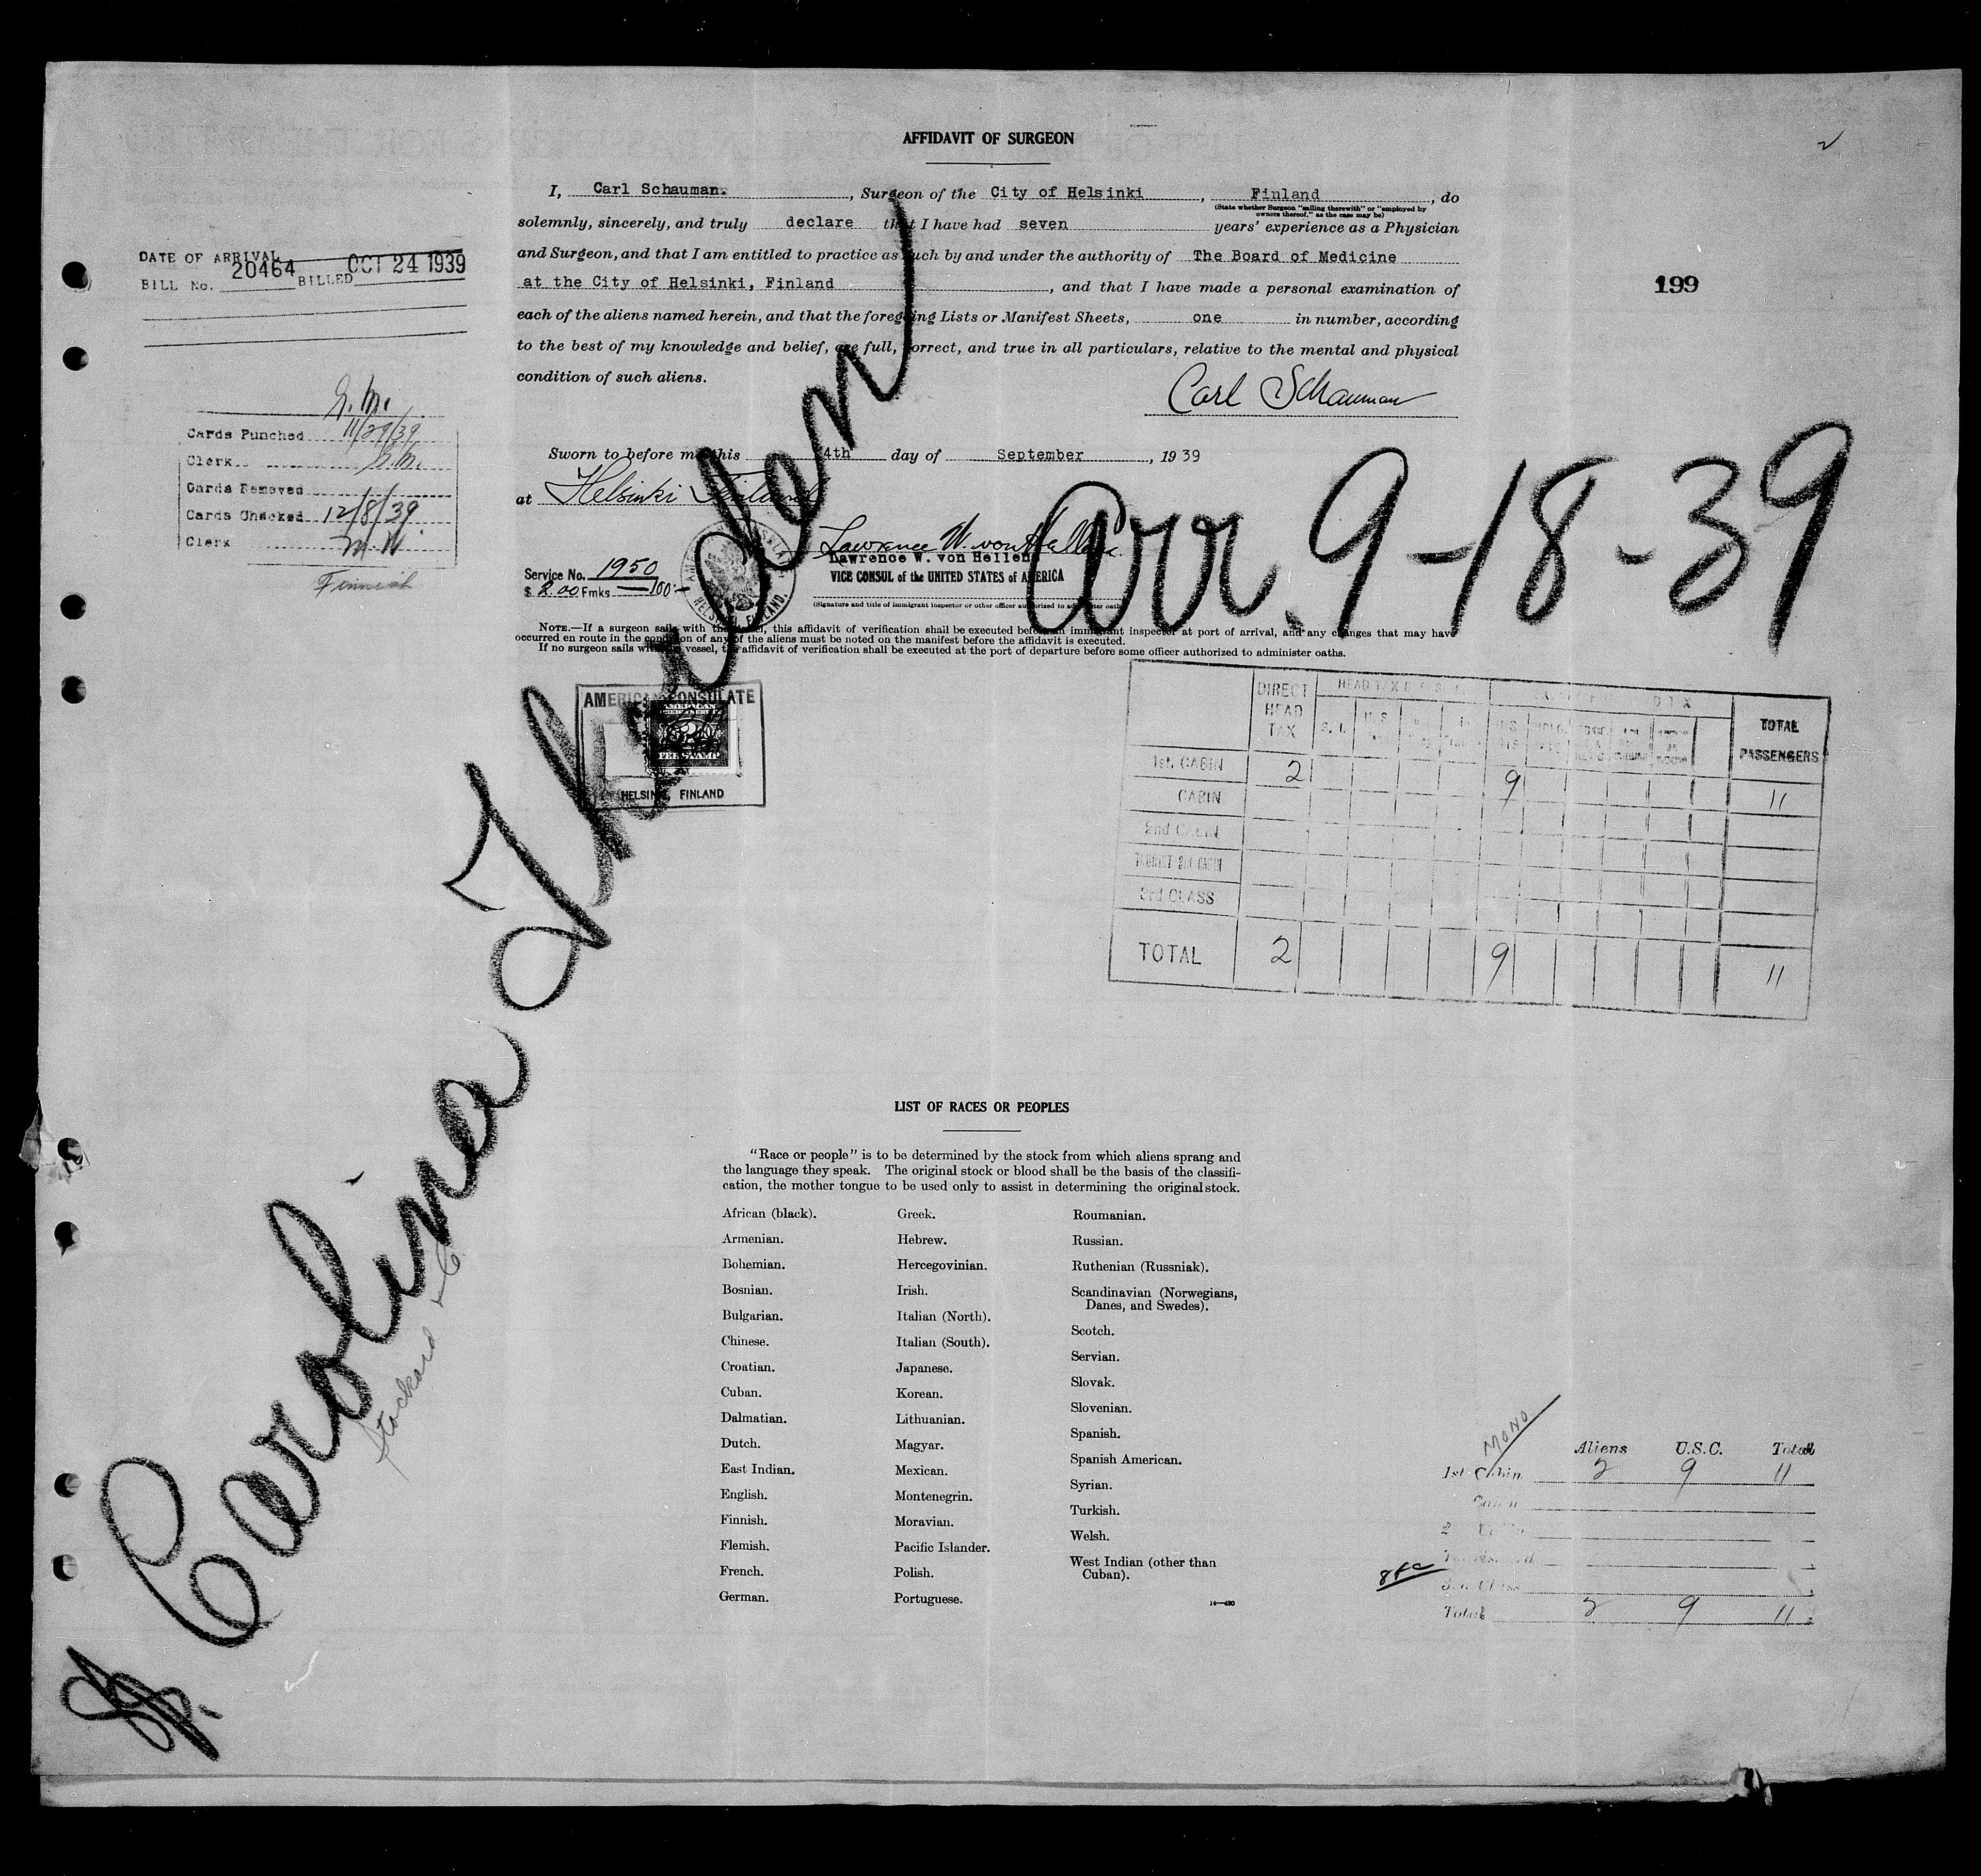 AFFIDAVIT OF SURGEON
I, Carl Schauman, Surgeon of the City of Helsinki, Finland, do
(State whether Surgeon "sailing therewith" or "employed by
owners thereof," as the case may be)
solemnly, sincerely, and truly declare that I have had seven years' experience as a Physician
and Surgeon, and that I am entitled to practice as such by and under the authority of The Board of Medicine
at the City of Helsinki, Finland, and that I have made a personal examination of
each of the aliens named herein, and that the foregoing Lists or Manifest Sheets, one in number, according
to the best of my knowledge and belief, are full, correct, and true in all particulars, relative to the mental and physical
condition of such aliens.
Carl Schauman
Sworn to before me this 4th day of September, 1939
at Helsinki Finland
Lawrence W. von Hellens
Lawrence W. von Hellens
VICE CONSUL of the UNITED STATES of AMERICA
(Signature and title of immigrant inspector or other officer authorized to administer oaths)
Service No. 1950
$ 2.00 Fmks 100:-
HELSINKI, FINLAND.
NOTE.—If a surgeon sails with the vessel, this affidavit of verification shall be executed before an immigrant inspector at port of arrival, and any changes that may have
occurred en route in the condition of any of the aliens must be noted on the manifest before the affidavit is executed.
If no surgeon sails with the vessel, the affidavit of verification shall be executed at the port of departure before some officer authorized to administer oaths.
DATE OF ARRIVAL
BILL No. 20464 BILLED OCT 24 1939
G.M.
Cards Punched 11/29/39
Clerk G.M.
Cards Removed
Cards Checked 12/8/39
Clerk M.W.
Finnish
199
Arr. 9-18-39
AMERICAN CONSULATE
AMERICAN
FOREIGN SERVICE
FEE STAMP
HELSINKI, FINLAND
DIRECT HEAD TAX
TOTAL PASSENGERS
1st. CABIN 2 9 11
CABIN
2nd CABIN
TOURIST 3rd CABIN
3rd CLASS
TOTAL 2 9 11
Sp. Carolina Thorden)
Stockard
LIST OF RACES OR PEOPLES
"Race or people" is to be determined by the stock from which aliens sprang and
the language they speak. The original stock or blood shall be the basis of the classifi-
cation, the mother tongue to be used only to assist in determining the original stock.
African (black).
Armenian.
Bohemian.
Bosnian.
Bulgarian.
Chinese.
Croatian.
Cuban.
Dalmatian.
Dutch.
East Indian.
English.
Finnish.
Flemish.
French.
German.
Greek.
Hebrew.
Hercegovinian.
Irish.
Italian (North).
Italian (South).
Japanese.
Korean.
Lithuanian.
Magyar.
Mexican.
Montenegrin.
Moravian.
Pacific Islander.
Polish.
Portuguese.
Roumanian.
Russian.
Ruthenian (Russniak).
Scandinavian (Norwegians,
Danes, and Swedes).
Scotch.
Servian.
Slovak.
Slovenian.
Spanish.
Spanish American.
Syrian.
Turkish.
Welsh.
West Indian (other than
Cuban).
MONO
Aliens U.S.C. Total
1st Cabin 2 9 11
Cabin
3rd Class
Total 2 9 11